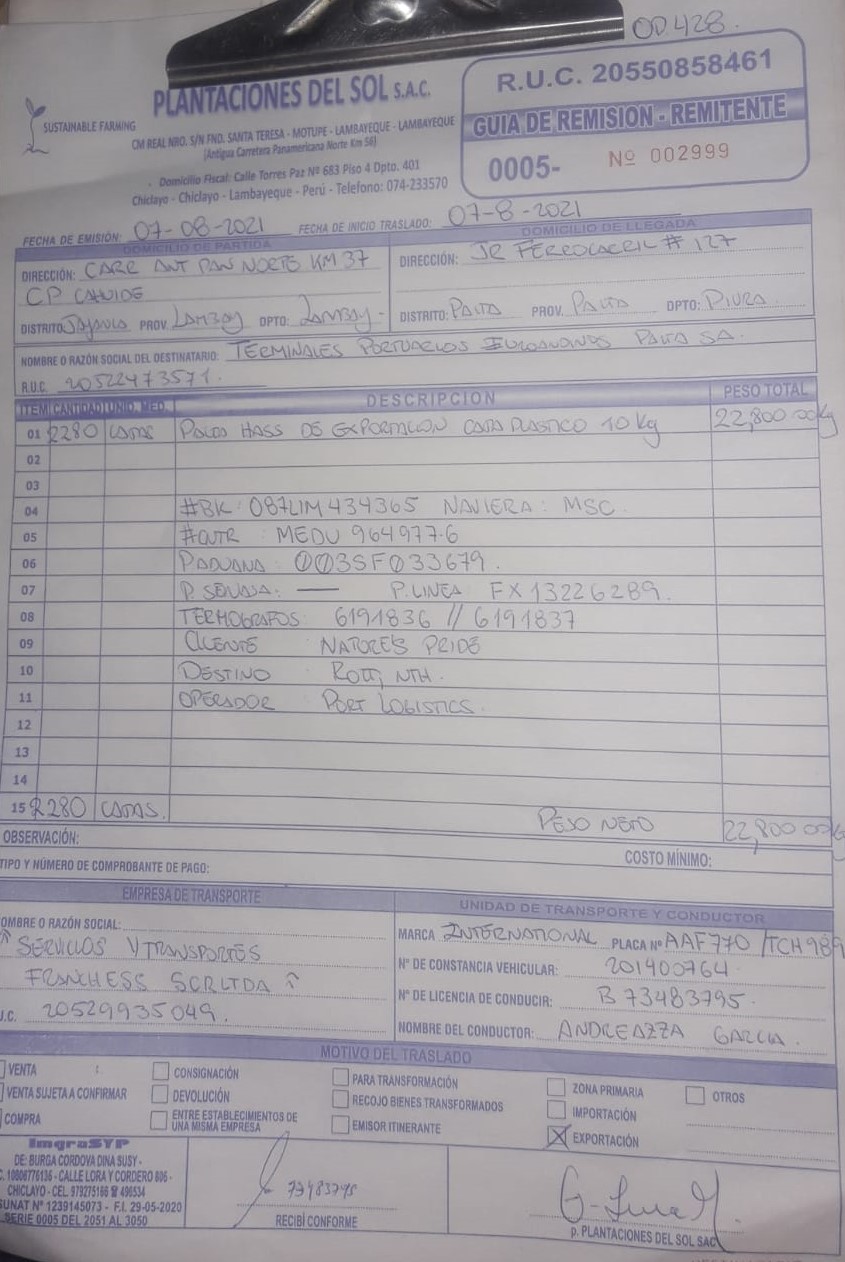 OD.428.
PLANTACIONES DEL SOL S.A.C.
SUSTAINABLE FARMING
CM REAL NRO. S/N FND. SANTA TERESA - MOTUPE - LAMBAYEQUE - LAMBAYEQUE
(Antigua Carretera Panamericana Norte Km 56)
Domicilio Fiscal: Calle Torres Paz Nº 683 Piso 4 Dpto. 401
Chiclayo - Chiclayo - Lambayeque - Perú - Telefono: 074-233570
R.U.C. 20550858461
GUIA DE REMISION - REMITENTE
0005- Nº 002999
FECHA DE EMISIÓN: 07-08-2021 FECHA DE INICIO TRASLADO: 07-8-2021
DOMICILIO DE PARTIDA
DIRECCIÓN: CARR ANT PAN NORTE KM 37
CP CAHUIDE
DISTRITO: PROV. LAMBAY DPTO: LAMBAY-
DOMICILIO DE LLEGADA
DIRECCIÓN: JR FERROCARRIL # 127
DISTRITO: PAITA PROV. PAITA DPTO: PIURA
NOMBRE O RAZÓN SOCIAL DEL DESTINATARIO: TERMINALES PORTUARIOS EUROANDINOS PAITA SA.
R.U.C. 20522473571.
ITEM CANTIDAD UNID. MED. DESCRIPCION PESO TOTAL
01 2280 CAJAS PALTA HASS DE EXPORTACION CAJA PLASTICO 10 Kg 22,800.00Kg
02
03
04 #BK: 087LIM434365 NAVIERA: MSC
05 #CNTR : MEDU 964977-6
06 P.ADUANA: 003SF033679.
07 P. SENASA: — P.LINEA FX13226289.
08 TERMOGRAFOS: 6191836 // 6191837
09 CLIENTE NATORE'S PRIDE
10 DESTINO : ROTT, NTH.
11 OPERADOR PORT LOGISTICS.
12
13
14
15 2280 CAJAS. PESO NETO 22,800.00Kg
OBSERVACIÓN:
COSTO MÍNIMO:
TIPO Y NÚMERO DE COMPROBANTE DE PAGO:
EMPRESA DE TRANSPORTE
OMBRE O RAZÓN SOCIAL:
" SERVICIOS Y TRANSPORTES
FRANCHESS SCRLTDA "
.C. 20529935049.
UNIDAD DE TRANSPORTE Y CONDUCTOR
MARCA INTERNATIONAL PLACA Nº AAF770 /TCH989
Nº DE CONSTANCIA VEHICULAR: 201400764
Nº DE LICENCIA DE CONDUCIR: B 73483795
NOMBRE DEL CONDUCTOR: ANDREAZZA GARCIA.
MOTIVO DEL TRASLADO
VENTA
VENTA SUJETA A CONFIRMAR
COMPRA
CONSIGNACIÓN
DEVOLUCIÓN
ENTRE ESTABLECIMIENTOS DE
UNA MISMA EMPRESA
PARA TRANSFORMACIÓN
RECOJO BIENES TRANSFORMADOS
EMISOR ITINERANTE
ZONA PRIMARIA
IMPORTACIÓN
EXPORTACIÓN
OTROS
ImgraSYP
DE: BURGA CORDOVA DINA SUSY -
C. 10806776136 - CALLE LORA Y CORDERO 806 -
CHICLAYO - CEL. 979275166 ☎ 496534
SUNAT Nº 1239145073 - F.I. 29-05-2020
SERIE 0005 DEL 2051 AL 3050
73483795
RECIBÍ CONFORME
p. PLANTACIONES DEL SOL SAC